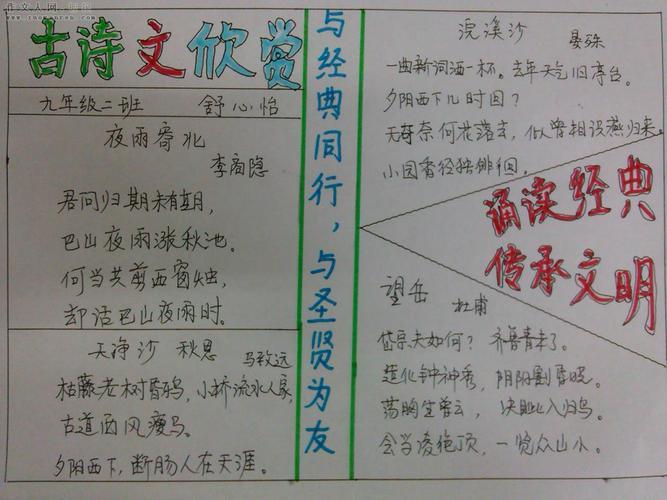 作文人网
www.zuowenren.net
古诗文欣赏
九年级二班 舒心怡
夜雨寄北
李商隐
君问归期未有期,
巴山夜雨涨秋池。
何当共剪西窗烛,
却话巴山夜雨时。
天净沙 秋思 马致远
枯藤老树昏鸦,小桥流水人家,
古道西风瘦马。
夕阳西下,断肠人在天涯。
与经典同行,与圣贤为友
浣溪沙 晏殊
一曲新词酒一杯。去年天气旧亭台。
夕阳西下几时回?
无可奈何花落去,似曾相识燕归来,
小园香径独徘徊。
诵读经典
传承文明
望岳 杜甫
岱宗夫如何?齐鲁青未了。
造化钟神秀,阴阳割昏晓。
荡胸生曾云,决眦入归鸟。
会当凌绝顶,一览众山小。